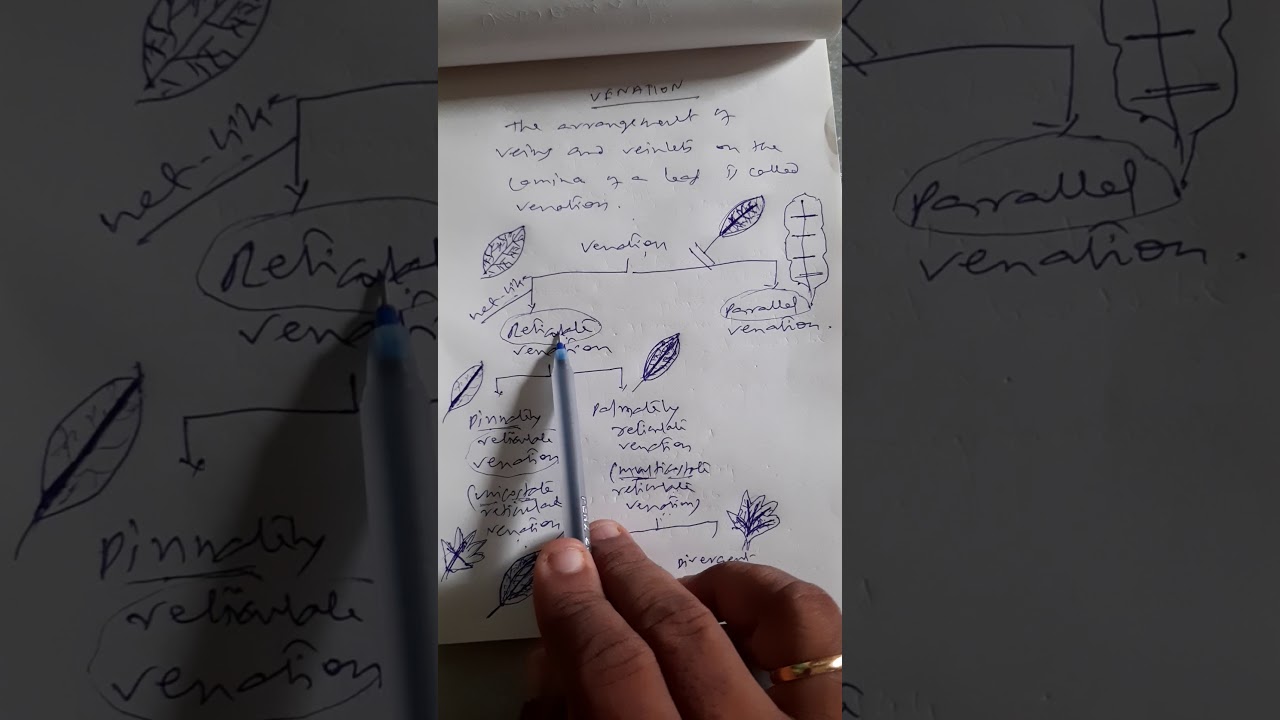 VENATION
The arrangement of
veins and veinlets on the
lamina of a leaf is called
venation.
venation
net-like
Reticulate
venation
Parallel
venation.
Pinnately
reticulate
venation
(unicostate
reticulate
venation
Palmately
reticulate
venation
(multicostate
reticulate
venation)
Divergent